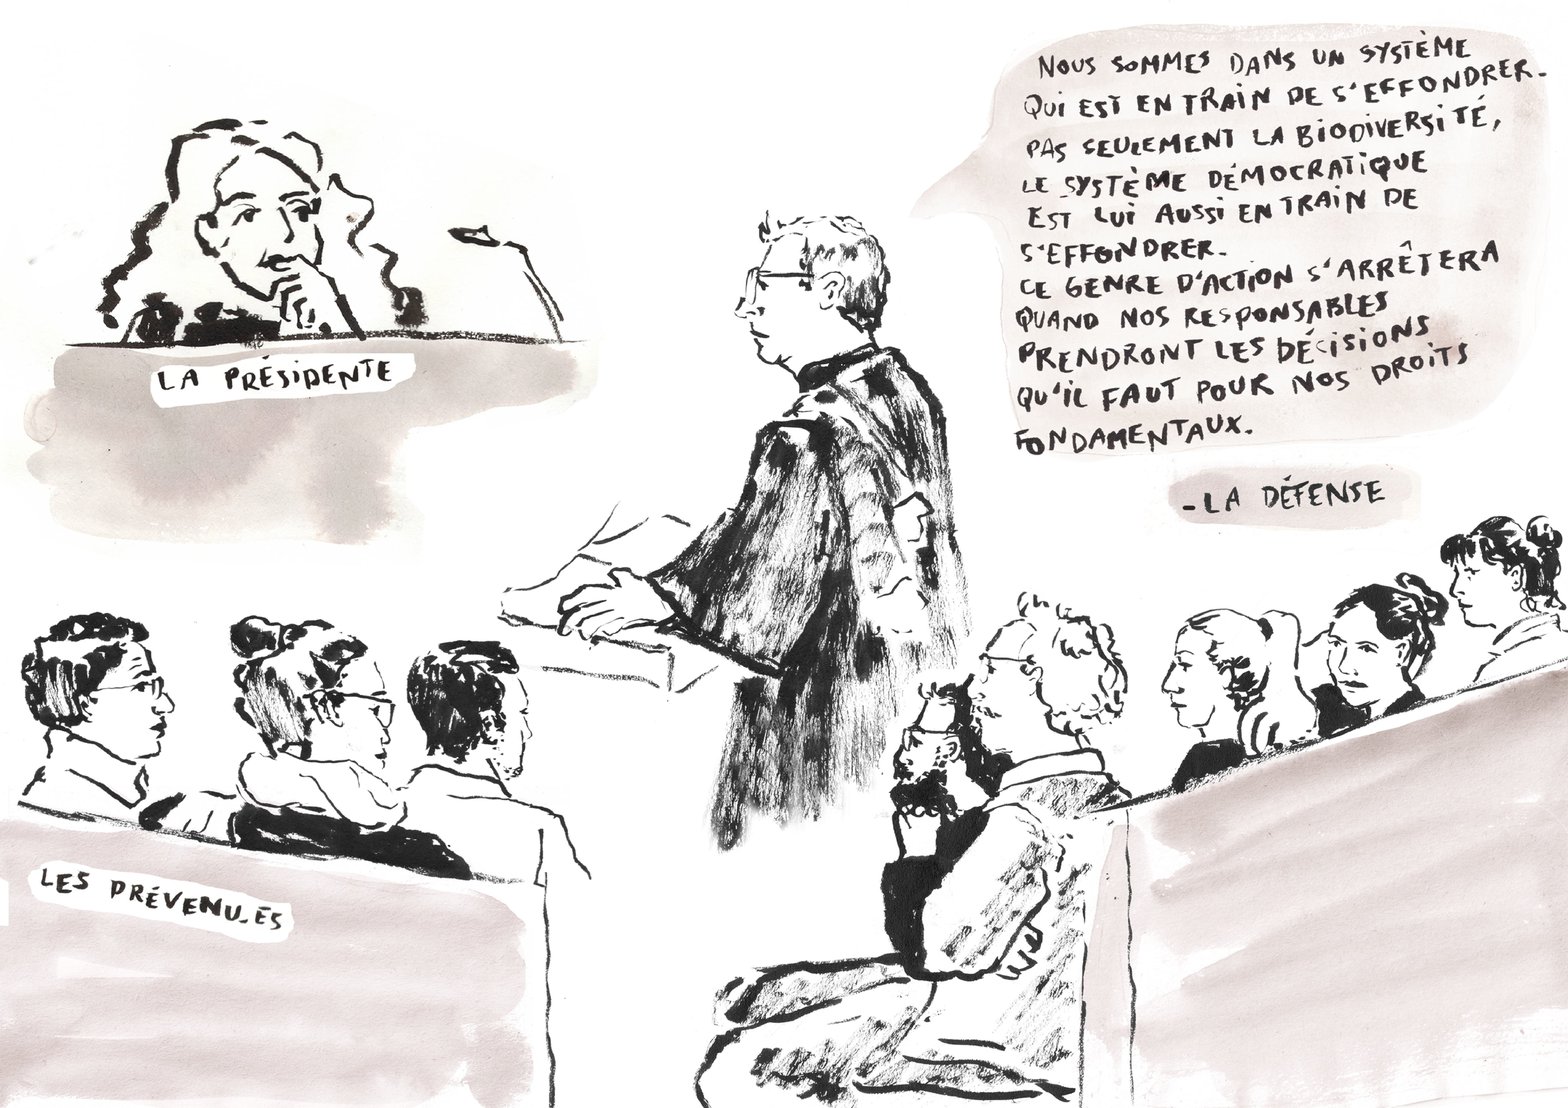 NOUS SOMMES DANS UN SYSTÈME
QUI EST EN TRAIN DE S'EFFONDRER.
PAS SEULEMENT LA BIODIVERSITÉ,
LE SYSTÈME DÉMOCRATIQUE
EST LUI AUSSI EN TRAIN DE
S'EFFONDRER.
CE GENRE D'ACTION S'ARRÊTERA
QUAND NOS RESPONSABLES
PRENDRONT LES DÉCISIONS
QU'IL FAUT POUR NOS DROITS
FONDAMENTAUX.
-LA DÉFENSE
LA PRÉSIDENTE
LES PRÉVENU.ES